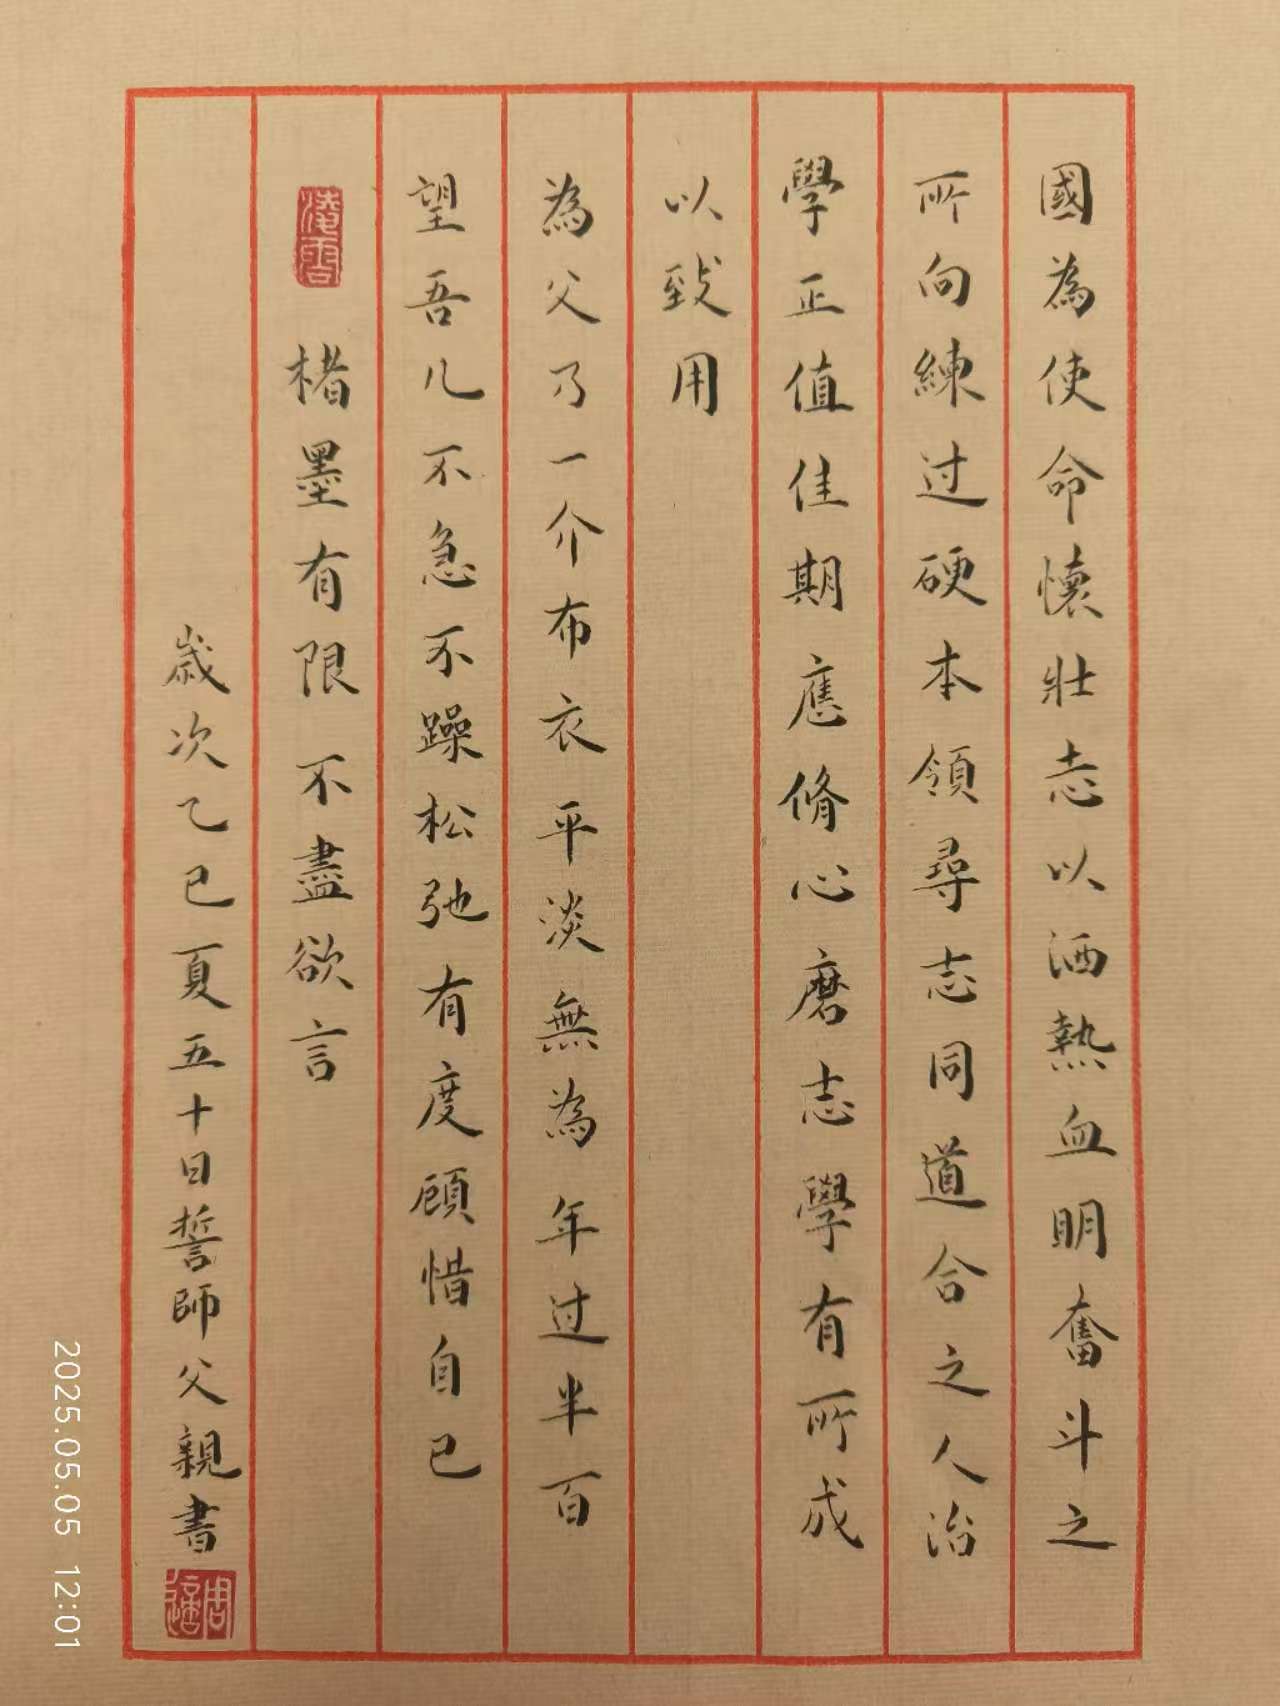 國為使命懷壯志以洒熱血明奮斗之
所向練过硬本領尋志同道合之人治
學正值佳期應脩心磨志學有所成
以致用
為父乃一介布衣平淡無為年过半百
望吾儿不急不躁松弛有度顾惜自己
楮墨有限不盡欲言
歲次乙巳夏五十日誓師父親書
2025.05.05 12:01